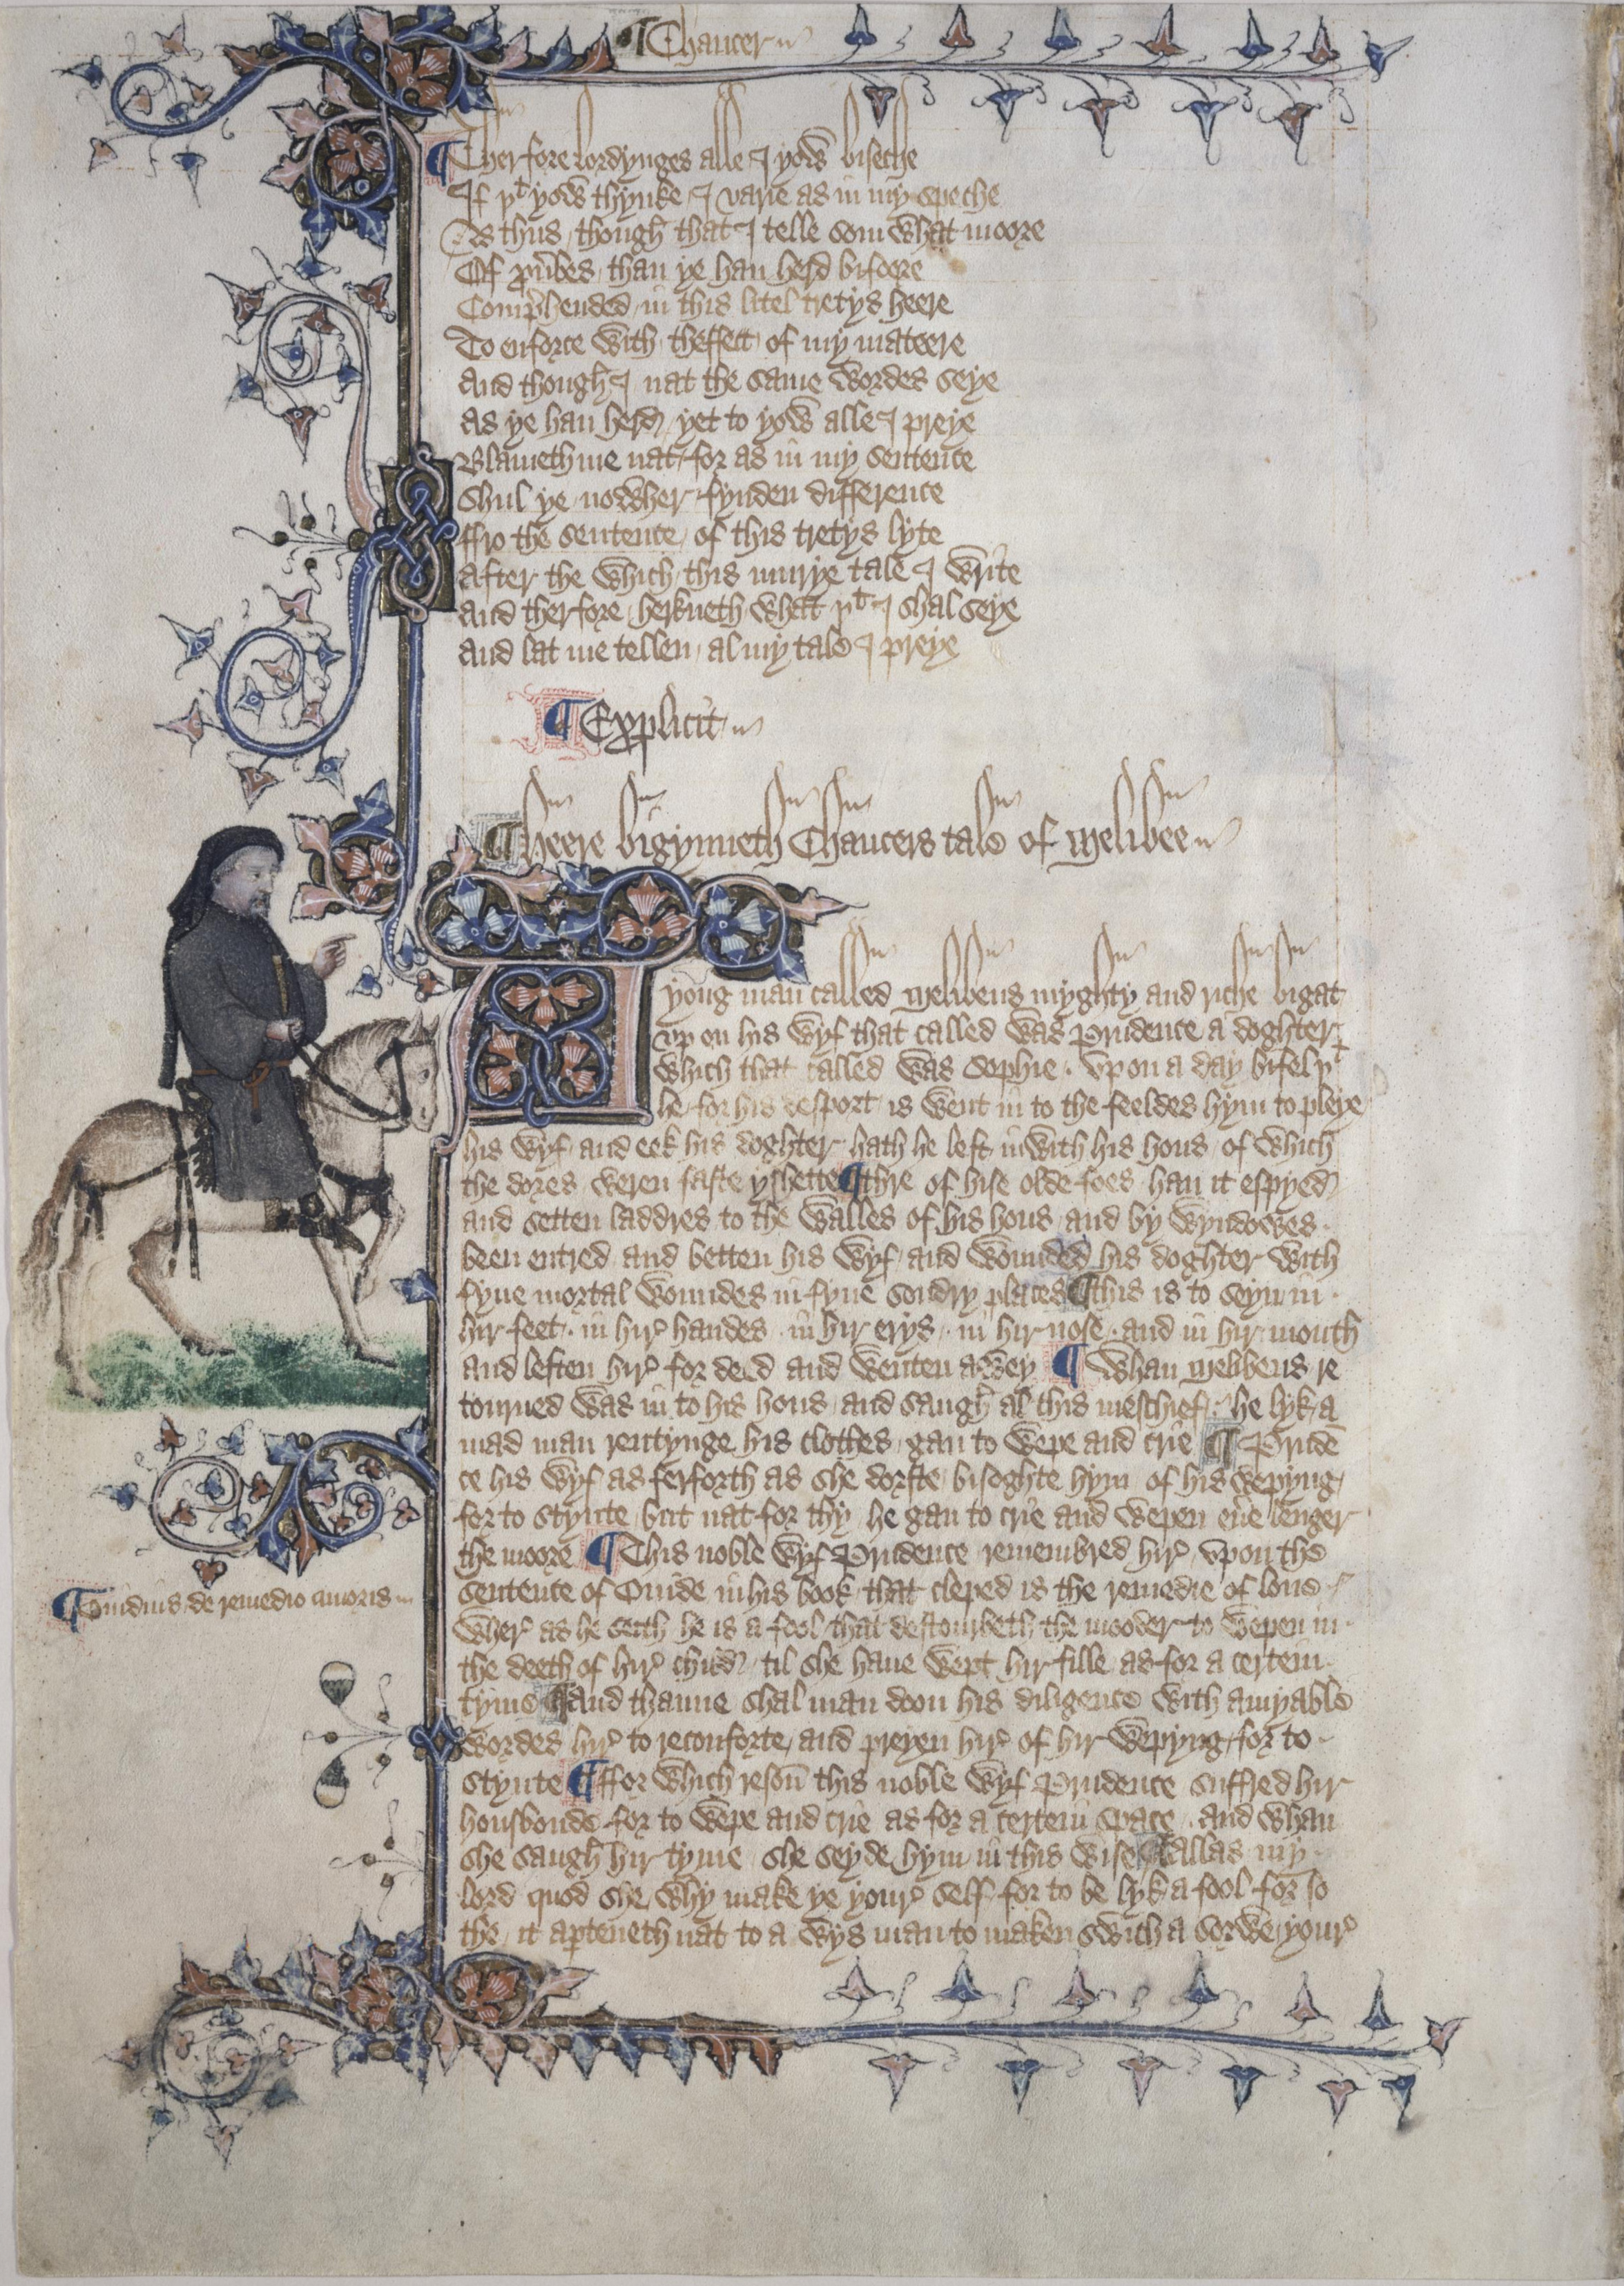 ¶ Chaucer
¶ Therfore lordynges alle I yow biseche
If þt yow thynke I varie as in my speche
As thus though that I telle som what moore
Of prouerbes than ye han herd bifoore
Comprehended in this litel tretys heere
To enforce with theffect of my mateere
And though I nat the same wordes seye
As ye han herd yet to yow alle I preye
Blameth me nat for as in my sentence
Shul ye nowher fynden difference
ffro the sentence of this tretys lyte
After the which this murye tale I write
And therfore herkneth what þt I shal seye
And lat me tellen al my tale I preye
¶ Explicit
¶ Heere bigynneth Chaucers tale of Melibee
A yong man called Melibeus myghty and riche bigat
vp on his wyf that called was Prudence a doghter
which that called was Sophie . vpon a day bifel þt
he for his desport is went in to the feeldes hym to pleye
his wyf and eek his doghter hath he left inwith his hous of which
the dores weren faste yshette ¶ thre of hise olde foes han it espyed
and setten laddres to the walles of his hous and by wyndowes
been entred and betten his wyf and wounded his doghter with
fyue mortal woundes in fyue sondry places ¶ this is to seyn in
hir feet . in hir handes . in hir erys . in hir nose . and in hir mouth
and leften hir for deed and wenten awey ¶ Whan Melibeus re
tourned was in to his hous and saugh al this meschief he lyk a
mad man rentynge his clothes gan to wepe and crie ¶ Pruden
ce his wyf as ferforth as she dorste bisoghte hym of his wepyng
for to stynte but nat for thy he gan to crie and wepen euere lenger
the moore ¶ This noble wyf Prudence remembred hir vpon the
sentence of Ouide in his book that cleped is the remedie of loue
¶ Ouidius de remedio amoris
wher as he seith he is a fool that destourbeth the mooder to wepen in
the deeth of hir child til she haue wept hir fille as for a certein
tyme ¶ And thanne shal man doon his diligence with amyable
wordes hir to reconforte and preyen hir of hir wepyng for to
stynte ¶ ffor which resoun this noble wyf Prudence suffred hir
housbonde for to wepe and crie as for a certein space . and whan
she saugh hir tyme she seyde hym in this wise ¶ Allas my
lord quod she why make ye your self for to be lyk a fool for so
the it aperteneth nat to a wys man to maken swich a sorwe your